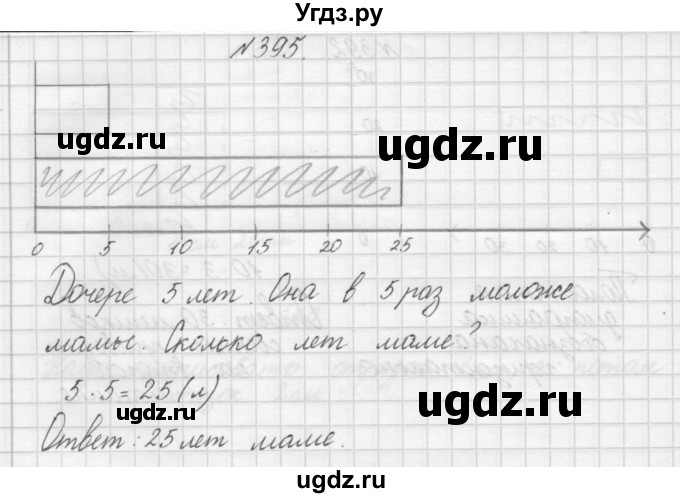 Угдз.ру
№395.
ugdz.ru
ugdz.ru
0 5 10 15 20 25
Дочере 5 лет. Она в 5 раз моложе
ugdz.ru
мамы. Сколько лет маме?
5 · 5 = 25 (л)
ugdz.ru
ugdz.ru
Ответ: 25 лет маме.
ugdz.ru